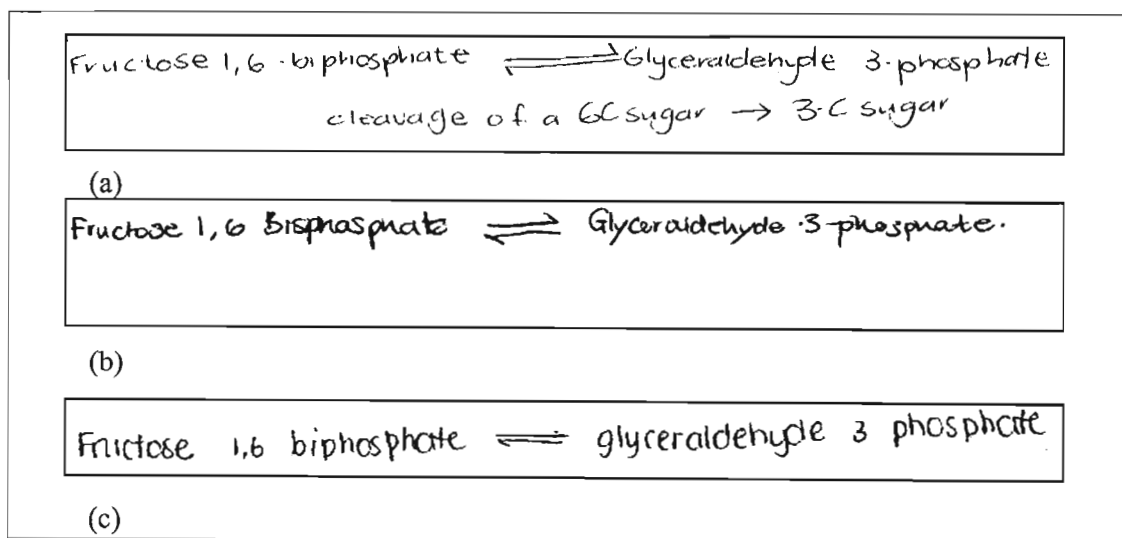 Fructose 1,6 biphosphate ⇌ Glyceraldehyde 3-phosphate
cleavage of a 6C sugar → 3-C sugar
(a)
Fructose 1,6 Bisphasphate ⇌ Glyceraldehyde 3-phosphate.
(b)
Fructose 1,6 biphosphate ⇌ glyceraldehyde 3 phosphate
(c)